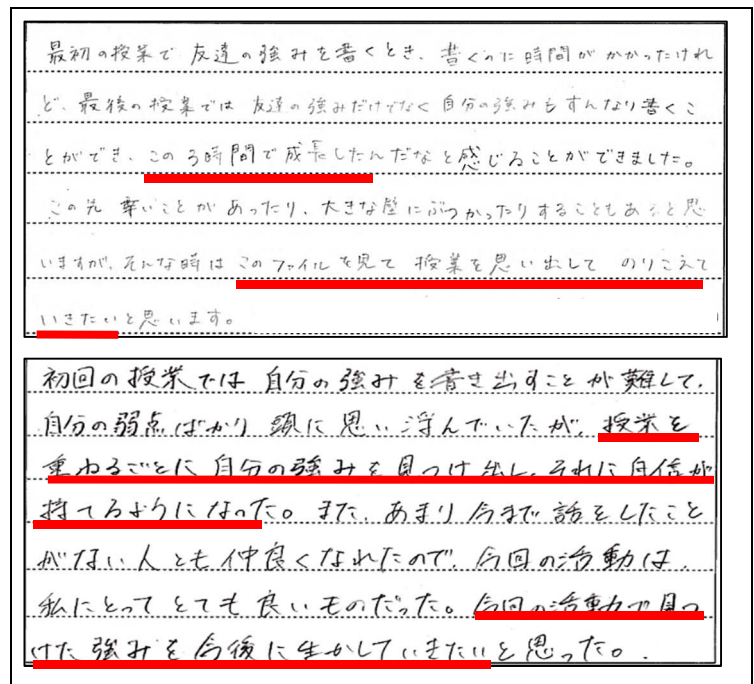 最初の授業で友達の強みを書くとき、書くのに時間がかかったけれ
ど、最後の授業では友達の強みだけでなく自分の強みもすんなり書くこ
とができ、この3時間で成長したんだなと感じることができました。
この先辛いことがあったり、大きな壁にぶつかったりすることもあると思
いますが、そんな時はこのファイルを見て授業を思い出してのりこえて
いきたいと思います。
初回の授業では自分の強みを書き出すことが難しくて、
自分の弱点ばかり頭に思い浮んでいたが、授業を
重ねるごとに自分の強みを見つけ出し、それに自信が
持てるようになった。また、あまり今まで話をしたこと
がない人とも仲良くなれたので、今回の活動は、
私にとってとても良いものだった。今回の活動で見つ
けた強みを今後に生かしていきたいと思った。